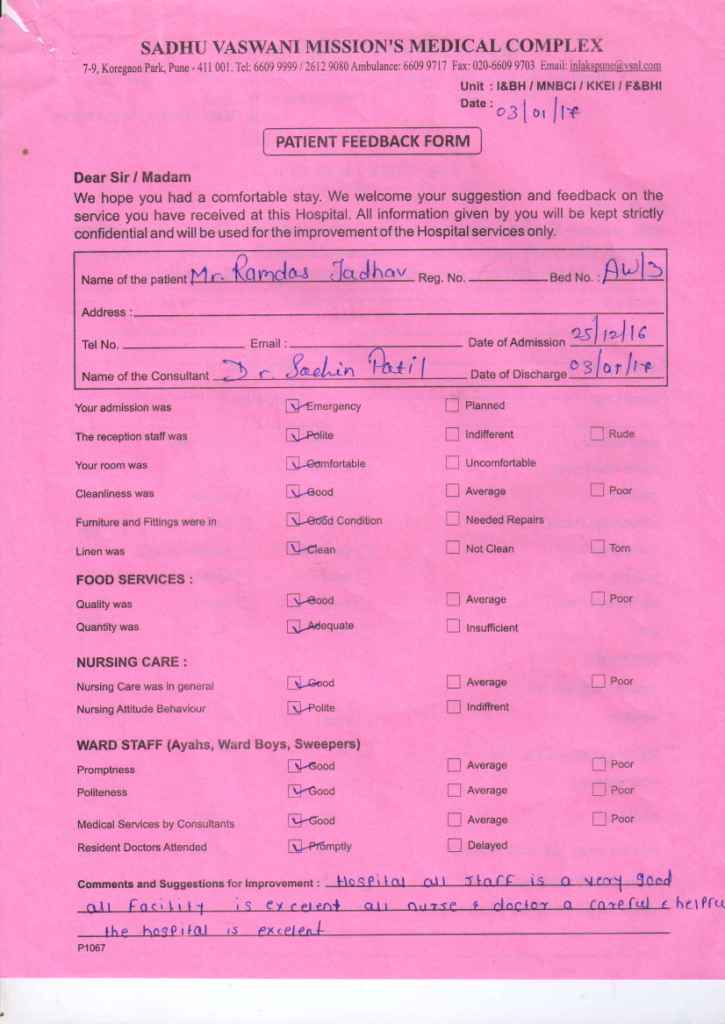 SADHU VASWANI MISSION'S MEDICAL COMPLEX
7-9, Koregaon Park, Pune - 411 001. Tel: 6609 9999 / 2612 9080 Ambulance: 6609 9717 Fax: 020-6609 9703 Email: inlakspune@vsnl.com
Unit : I&BH / MNBCI / KKEI / F&BHI
Date : 03/01/17
PATIENT FEEDBACK FORM
Dear Sir / Madam
We hope you had a comfortable stay. We welcome your suggestion and feedback on the
service you have received at this Hospital. All information given by you will be kept strictly
confidential and will be used for the improvement of the Hospital services only.
Name of the patient Mr. Ramdas Jadhav Reg. No. Bed No. : AW/3
Address :
Tel No. Email : Date of Admission 25/12/16
Name of the Consultant Dr. Sachin Patil Date of Discharge 03/01/17
Your admission was Emergency Planned
The reception staff was Polite Indifferent Rude
Your room was Comfortable Uncomfortable
Cleanliness was Good Average Poor
Furniture and Fittings were in Good Condition Needed Repairs
Linen was Clean Not Clean Torn
FOOD SERVICES :
Quality was Good Average Poor
Quantity was Adequate Insufficient
NURSING CARE :
Nursing Care was in general Good Average Poor
Nursing Attitude Behaviour Polite Indiffrent
WARD STAFF (Ayahs, Ward Boys, Sweepers)
Promptness Good Average Poor
Politeness Good Average Poor
Medical Services by Consultants Good Average Poor
Resident Doctors Attended Promptly Delayed
Comments and Suggestions for Improvement : Hospital all staff is a very good
all Facility is excelent all nurse & doctor a careful & helpfu
the hospital is excelent
P1067